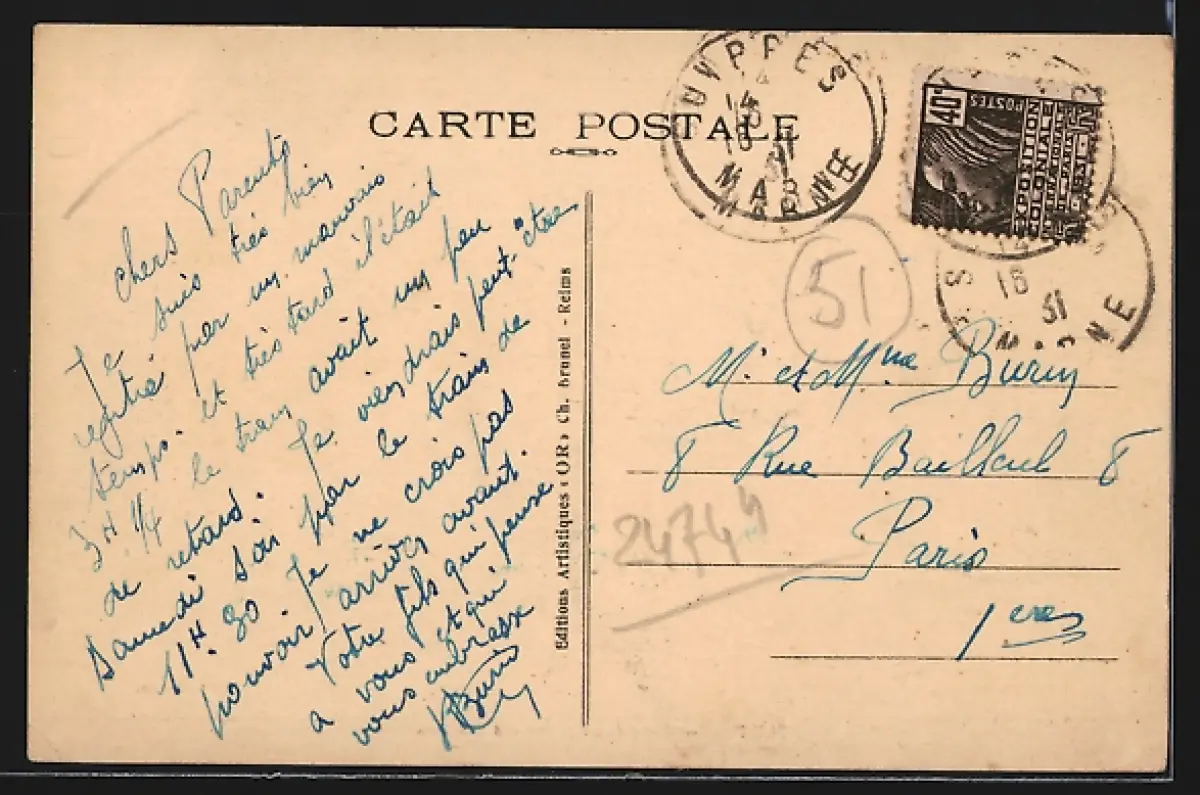 CARTE POSTALE
Chers Parents
Je suis très bien
rentré par un mauvais
temps. et très tard il était
3H 1/4 le train avait un peu
de retard. Je viendrais peut-être
Samedi soir par le train de
11H. 30. Je ne crois pas
pouvoir arriver avant.
Votre fils qui pense
a vous et qui
vous embrasse
Editions Artistiques « OR » Ch. Brunel - Reims
MARNE
14
18
31
MARNE
40c
POSTES
EXPOSITION
COLONIALE
INTERNATIONALE
PARIS
18
31
MARNE
51
M. et Mme Burin
8 Rue Bailleul 8
Paris
1er
24744